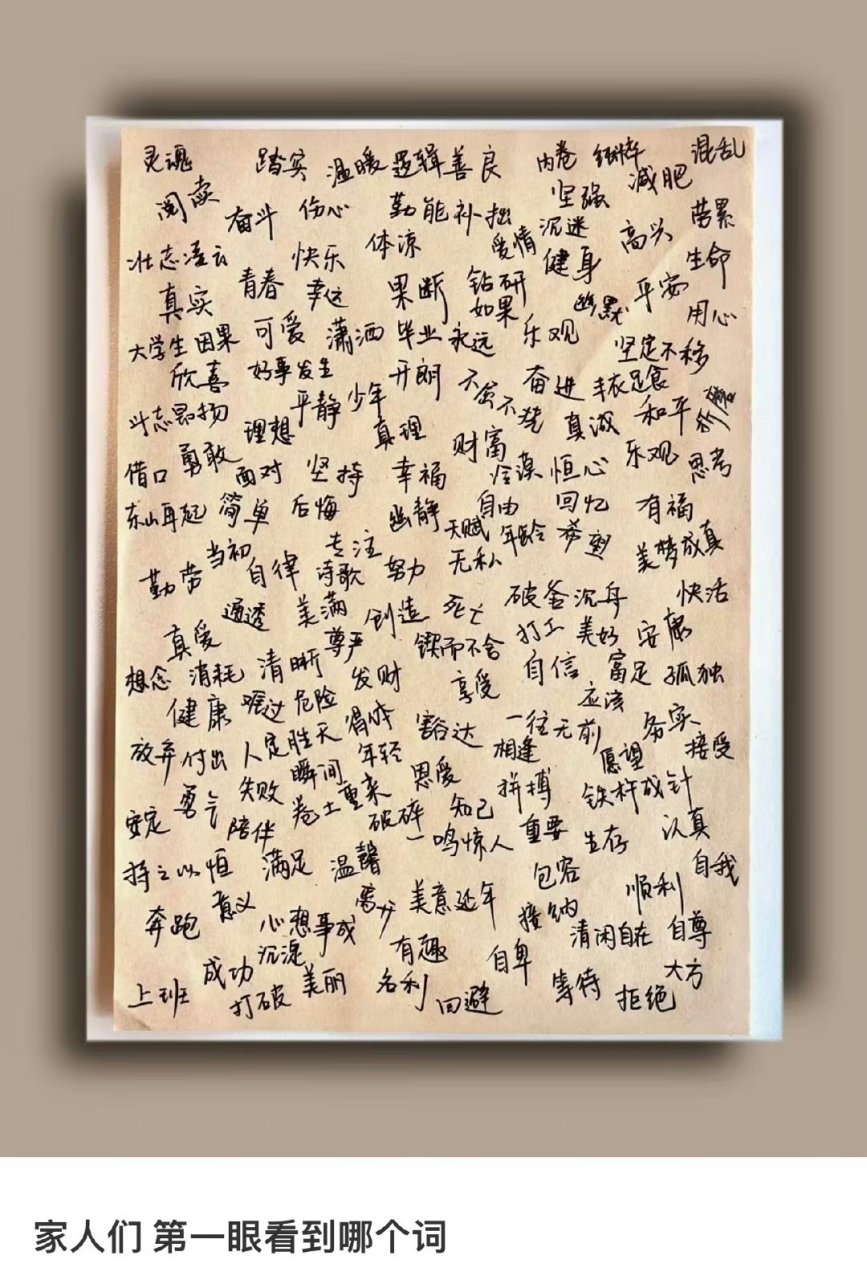 灵魂 踏实 温暖 逻辑 善良 内卷 纯粹 混乱
阅读 奋斗 伤心 勤能补拙 坚强 减肥
壮志凌云 快乐 体凉 爱情 沉迷 高兴 苦累
真实 青春 幸运 果断 钻研 健身 平安 生命
大学生 因果 可爱 潇洒 毕业 永远 如果 乐观 幽默 用心
欣喜 好事发生 开朗 不屈不挠 奋进 丰衣足食 坚定不移
斗志昂扬 理想 平静 少年 真理 财富 真诚 和平
借口 勇敢 面对 坚持 幸福 冷漠 恒心 乐观 思考
东山再起 简单 后悔 幽静 自由 回忆 有福
勤劳 当初 自律 专注 诗歌 努力 天赋 无私 年龄 希望 美梦成真
真爱 通透 美满 创造 死亡 破釜沉舟 快活
想念 消耗 清晰 尊严 发财 锲而不舍 打工 美好 安康
健康 难过 危险 享受 自信 富足 孤独
放弃 付出 人定胜天 得体 豁达 一往无前 应该 务实
安定 勇气 失败 瞬间 年轻 恩爱 相逢 愿望 接受
陪伴 卷土重来 破碎 知己 拼搏 铁杵成针
持之以恒 满足 温馨 一鸣惊人 重要 生存 认真
奔跑 意义 离分 美意延年 包容 顺利 自我
心想事成 接纳 清闲自在 自尊
上班 成功 沉淀 有趣 自卑 大方
打破 美丽 名利 回避 等待 拒绝
家人们 第一眼看到哪个词